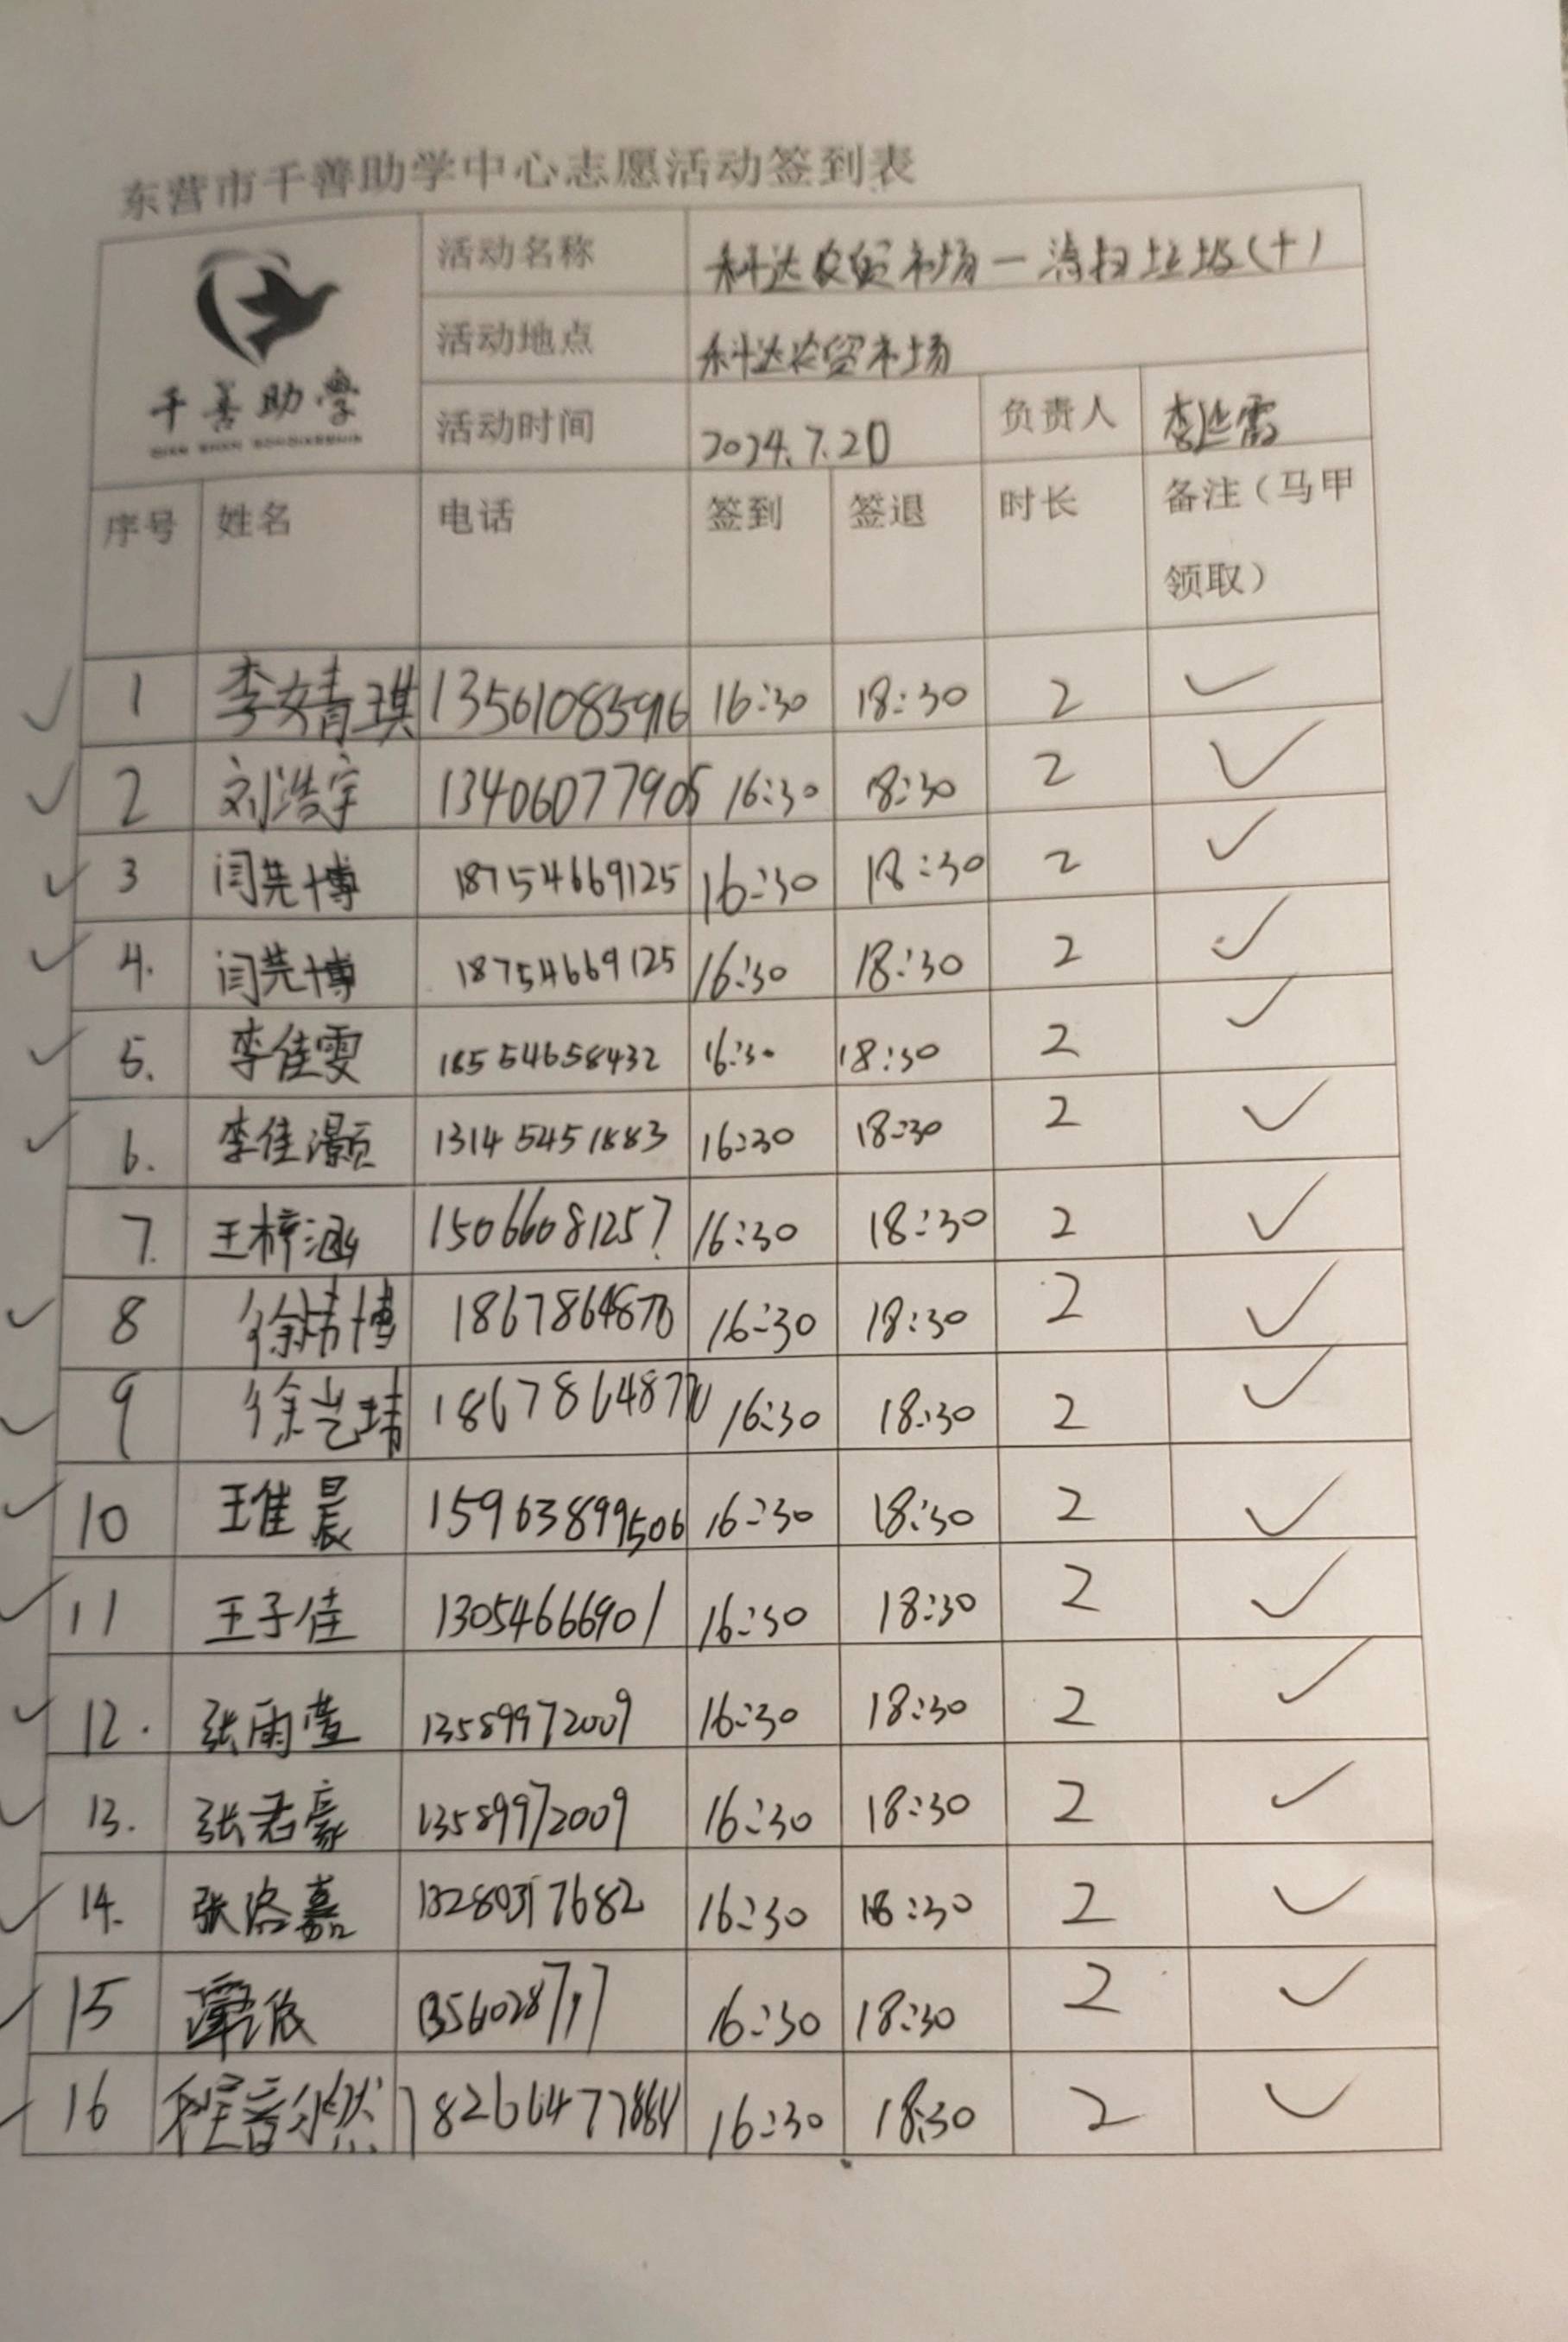 东营市千善助学中心志愿活动签到表
千善助学
活动名称 科达农贸市场一清扫垃圾(十)
活动地点 科达农贸市场
活动时间 2024.7.20 负责人 李延霞
序号 姓名 电话 签到 签退 时长 备注（马甲领取）
1 李婧琪 13561083596 16:30 18:30 2 ✓
2 刘浩宇 13406077905 16:30 18:30 2 ✓
3 闫芫博 18754669125 16:30 18:30 2 ✓
4. 闫芫博 18754669125 16:30 18:30 2 ✓
5. 李佳雯 18554658432 16:30 18:30 2 ✓
6. 李佳灏 13145451883 16:30 18:30 2 ✓
7. 王梓涵 15066081257 16:30 18:30 2 ✓
8 徐炜博 18678648770 16:30 18:30 2 ✓
9 徐艺玮 18678648770 16:30 18:30 2 ✓
10 王隹晨 15963899506 16:30 18:30 2 ✓
11 王子佳 13054666901 16:30 18:30 2 ✓
12. 张雨萱 13589972009 16:30 18:30 2 ✓
13. 张君豪 13589972009 16:30 18:30 2 ✓
14. 张洛嘉 13280317682 16:30 18:30 2 ✓
15 16:30 18:30 2 ✓
16 程音尔然 18266477884 16:30 18:30 2 ✓